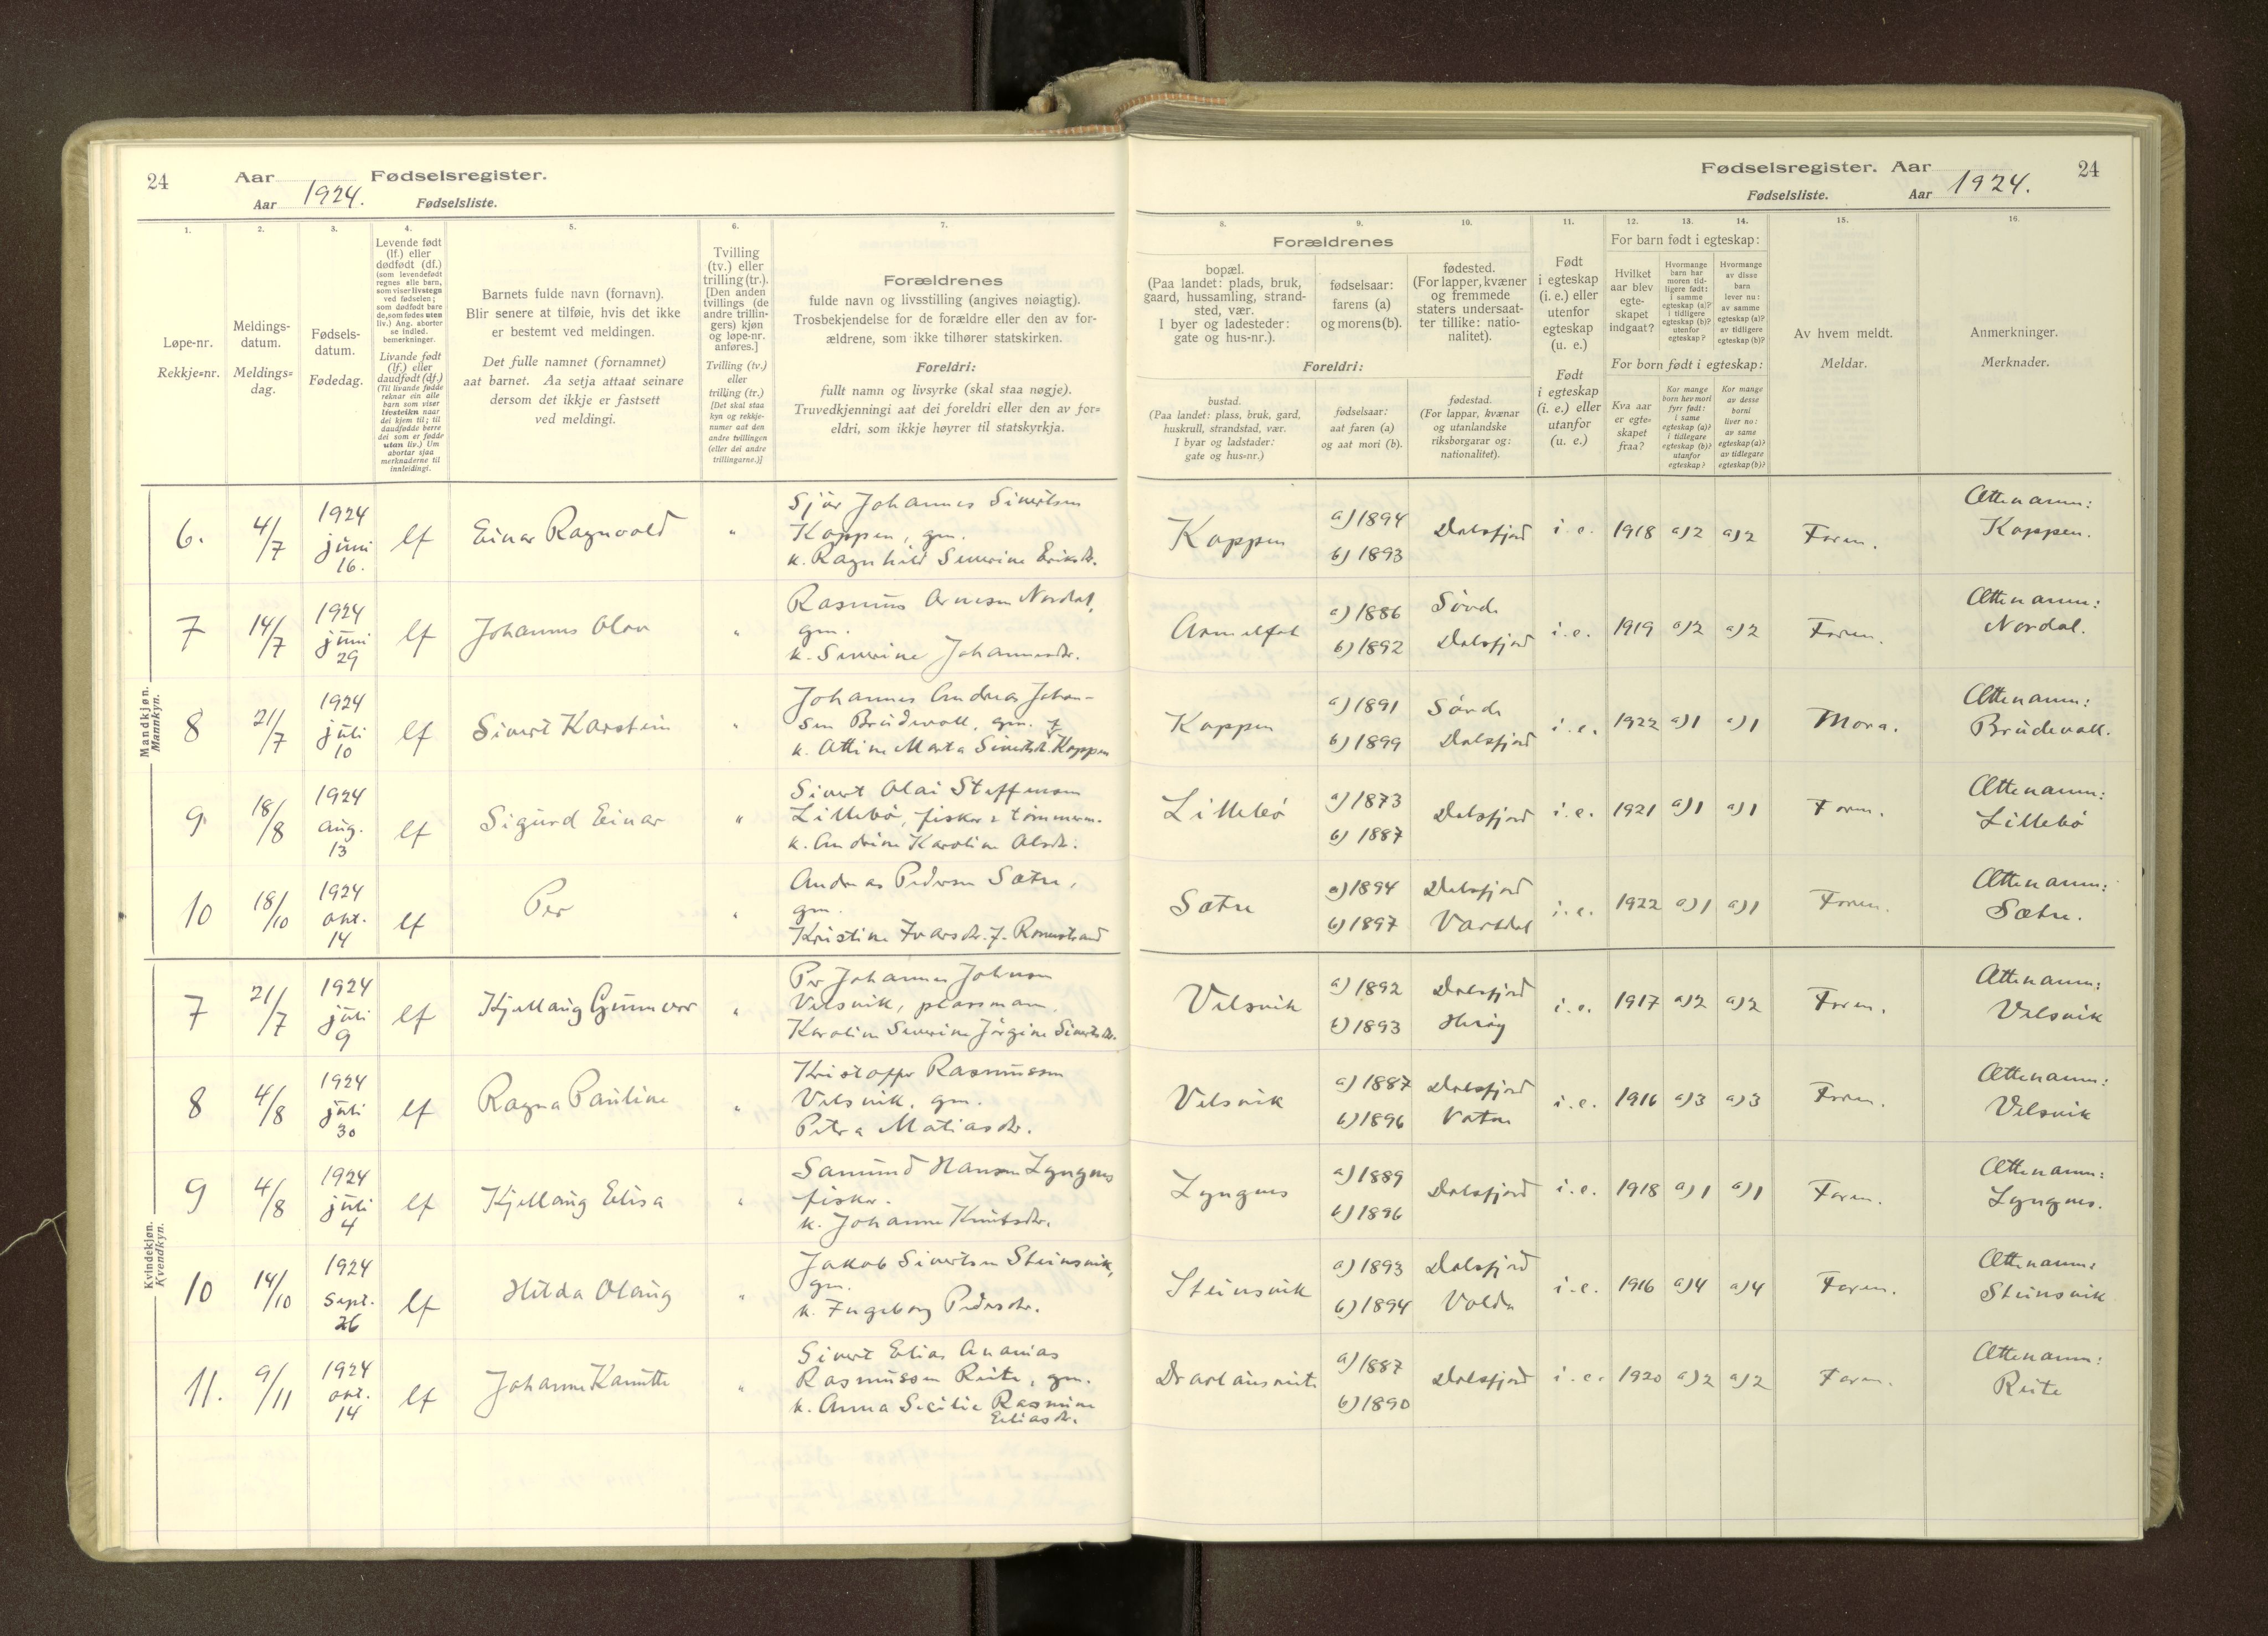 24
Aar
Fødselsregister.
Aar
1924.
Fødselsliste.
1.
2.
3.
4.
5.
6.
7.
Løpe-nr.
Rekkje=nr.
Meldings-
datum.
Meldings=
dag.
Fødsels-
datum.
Fødedag.
Levende født
(lf.) eller
dødfødt (df.)
(som levendefødt
regnes alle barn,
som viser livstegn
ved fødselen;
som dødfødt bare
de, som fødes uten
liv.) Ang. aborter
se indled.
bemerkninger.
Livande født
(lf.) eller
daudfødt (df.)
(Til livande fødde
reknar ein alle
barn som viser
livsteikn naar
dei kjem til; til
daudfødde berre
dei som er fødde
utan liv.) Um
abortar sjaa
merknaderne til
innleidingi.
Barnets fulde navn (fornavn).
Blir senere at tilføie, hvis det ikke
er bestemt ved meldingen.
Det fulle namnet (fornamnet)
aat barnet. Aa setja attaat seinare
dersom det ikkje er fastsett
ved meldingi.
Tvilling
(tv.) eller
trilling (tr.).
[Den anden
tvillings (de
andre trillin-
gers) kjøn
og løpe-nr.
anføres.]
Tvilling (tv.)
eller
trilling (tr.)
[Det skal staa
kyn og rekkje-
numer aat den
andre tvillingen
(eller dei andre
trillingarne.)]
Forældrenes
fulde navn og livsstilling (angives nøiagtig).
Trosbekjendelse for de forældre eller den av for-
ældrene, som ikke tilhører statskirken.
Foreldri:
fullt namn og livsyrke (skal staa nøgje).
Truvedkjenningi aat dei foreldri eller den av for=
eldri, som ikkje høyrer til statskyrkja.
Mandkjøn.
Mannkyn.
6.
4/7
1924
juni
16.
lf
Einar Ragnvald
"
Sjur Johannes Sivertsen
Koppen, gm.
k. Ragnhild Severine Eriksdr.
7
14/7
1924
juni
29
lf
Johannes Olav
"
Rasmus Arnesen Nordal,
gm.
k. Severine Johannesdr.
8
21/7
1924
juli
10
lf
Sivert Karstein
"
Johannes Andreas Johan-
sen Brudevoll, gm.
k. Attine Marta Sivertsdr. f. Koppen
9
18/8
1924
aug.
13
lf
Sigurd Einar
"
Sivert Olai Steffensen
Lillebø, fisker & tømmerm.
k. Andrine Karoline Olsdr.
10
18/10
1924
okt.
14
lf
Per
"
Andreas Pedersen Sætre,
gm.
Kristine Ivarsdr. f. Romestrand
Kvindekjøn.
Kvendkyn.
7
21/7
1924
juli
9
lf
Kjellaug Gunnvor
"
Per Johannes Johnsen
Velsvik, plassmann.
Karoline Severine Jørgine Sivertsdr.
8
4/8
1924
juli
30
lf
Ragna Pauline
"
Kristoffer Rasmussen
Velsvik, gm.
Petra Matiasdr.
9
4/8
1924
juli
4
lf
Kjellaug Elisa
"
Samund Hansen Lyngnes
fisker.
k. Johanne Knutsdr.
10
14/10
1924
Sept.
26
lf
Hilda Olaug
"
Jakob Sivertsen Steinsvik,
gm.
k. Ingeborg Pedersdr.
11.
9/11
1924
okt.
14
lf
Johanne Kanutte
"
Sivert Elias Ananias
Rasmussen Reite, gm.
k. Anna Sesilie Rasmine
Eliasdr.
Fødselsregister. Aar
24
Fødselsliste.
Aar
1924.
8.
9.
10.
11.
12.
13.
14.
15.
16.
Forældrenes
bopæl.
(Paa landet: plads, bruk,
gaard, hussamling, strand-
sted, vær.
I byer og ladesteder:
gate og hus-nr.).
fødselsaar:
farens (a)
og morens (b).
fødested.
(For lapper, kvæner
og fremmede
staters undersaat-
ter tillike: natio-
nalitet).
Foreldri:
bustad.
(Paa landet: plass, bruk, gard,
huskrull, strandstad, vær.
I byar og ladstader:
gate og hus=nr.)
fødselsaar:
aat faren (a)
og aat mori (b).
fødestad.
(For lappar, kvænar
og utanlandske
riksborgarar og:
nationalitet).
Født
i egteskap
(i. e.) eller
utenfor
egteskap
(u. e.)
Født
i egteskap
(i. e.) eller
utanfor
(u. e.)
For barn født i egteskap:
Hvilket
aar blev
egte-
skapet
indgaat?
Hvormange
barn har
moren tid-
ligere født:
i samme
egteskap (a)?
i tidligere
egteskap (b)?
utenfor
egteskap?
Hvormange
av disse
barn
lever nu:
av samme
egteskap (a)?
av tidligere
egteskap (b)?
For born født i egteskap:
Kva aar
er egte=
skapet
fraa?
Kor mange
born hev mori
fyrr født:
i same
egteskap (a)?
i tidlegare
egteskap (b)?
utanfor
egteskap?
Kor mange
av desse
borni
liver no:
av same
egteskap (a)?
av tidlegare
egteskap (b)?
Av hvem meldt.
Meldar.
Anmerkninger.
Merknader.
Koppen
a) 1894
b) 1893
Dalsfjord
i. e.
1918
a) 2
a) 2
Faren.
Ættenamn:
Koppen.
Årmelfot
a) 1886
b) 1892
Søvde
Dalsfjord
i. e.
1919
a) 2
a) 2
Faren.
Ættenamn:
Nordal.
Koppen
a) 1891
b) 1899
Søvde
Dalsfjord
i. e.
1922
a) 1
a) 1
Mora.
Ættenamn:
Brudevoll.
Lillebø
a) 1873
b) 1887
Dalsfjord
i. e.
1921
a) 1
a) 1
Faren.
Ættenamn:
Lillebø
Sætre
a) 1894
b) 1897
Dalsfjord
Vartdal
i. e.
1922
a) 1
a) 1
Faren.
Ættenamn:
Sætre.
Velsvik
a) 1892
b) 1893
Dalsfjord
Herøy
i. e.
1917
a) 2
a) 2
Faren.
Ættenamn:
Velsvik
Velsvik
a) 1887
b) 1896
Dalsfjord
Vatne
i. e.
1916
a) 3
a) 3
Faren.
Ættenamn:
Velsvik
Lyngnes
a) 1889
b) 1896
Dalsfjord
i. e.
1918
a) 1
a) 1
Faren.
Ættenamn:
Lyngnes.
Steinsvik
a) 1893
b) 1894
Dalsfjord
Volda
i. e.
1916
a) 4
a) 4
Faren.
Ættenamn:
Steinsvik
a) 1887
b) 1890
Dalsfjord
i. e.
1920
a) 2
a) 2
Faren.
Ættenamn:
Reite